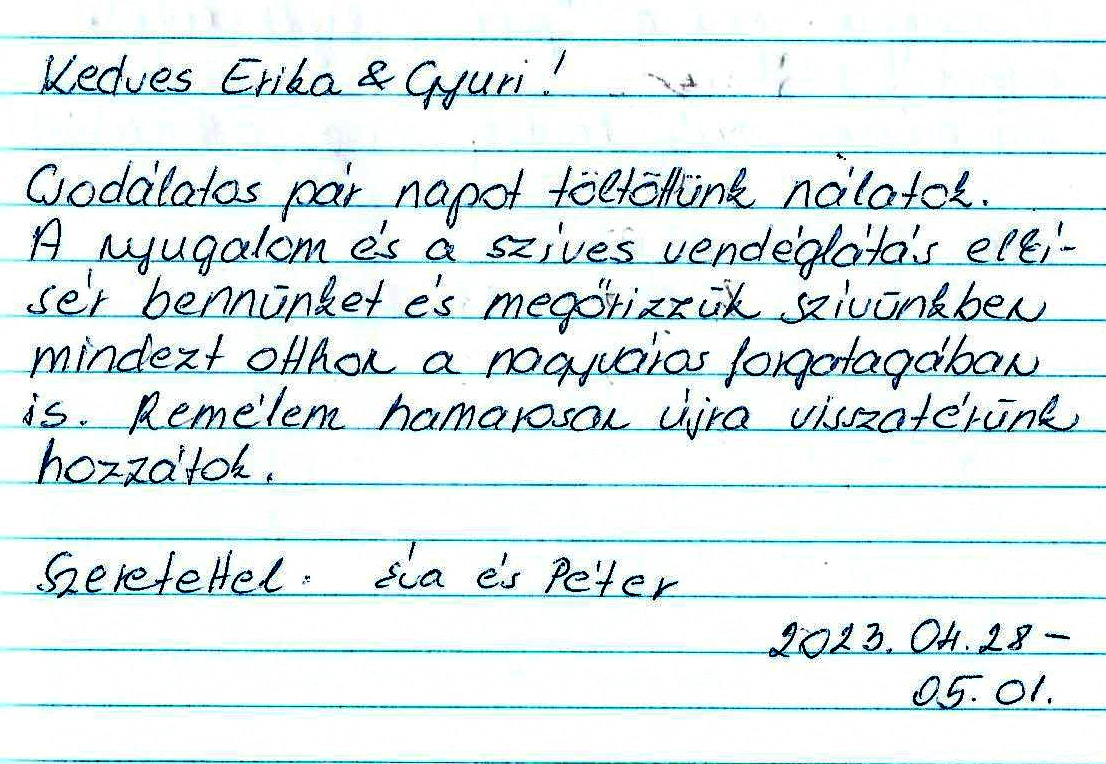 Kedves Erika & Gyuri!
Csodálatos pár napot töltöttünk nálatok.
A nyugalom és a szíves vendéglátás elkí-
sér bennünket és megőrizzük szivünkben
mindezt otthon a nagyváros forgatagában
is. Remélem hamarosan újra visszatérünk
hozzátok.
Szeretettel: és Péter
2023. 04. 28 -
05. 01.